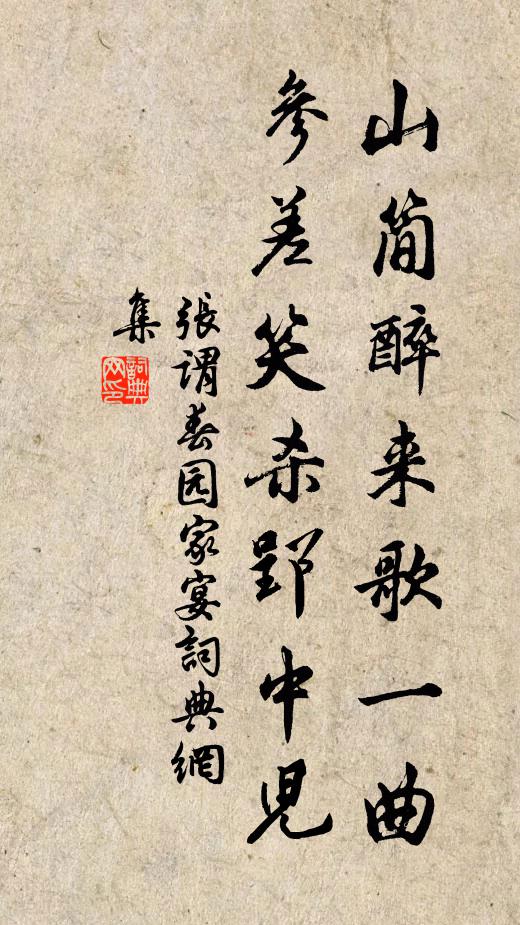 山简醉来歌一曲
參差笑杀郢中児
張謂春园家宴詞典網
集
詞典
网印